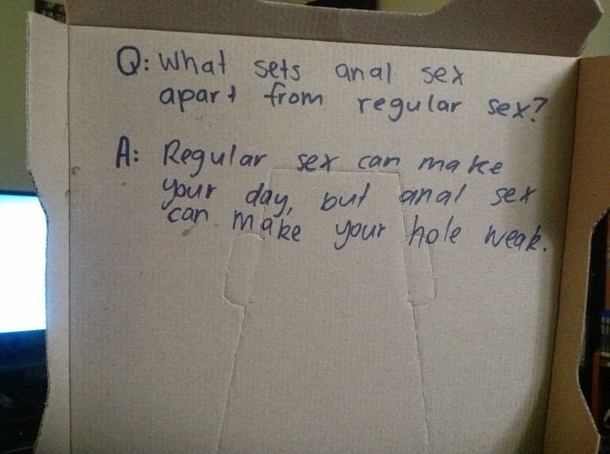 Q: What sets anal sex
apart from regular sex?
A: Regular sex can make
your day, but anal sex
can make your hole weak.